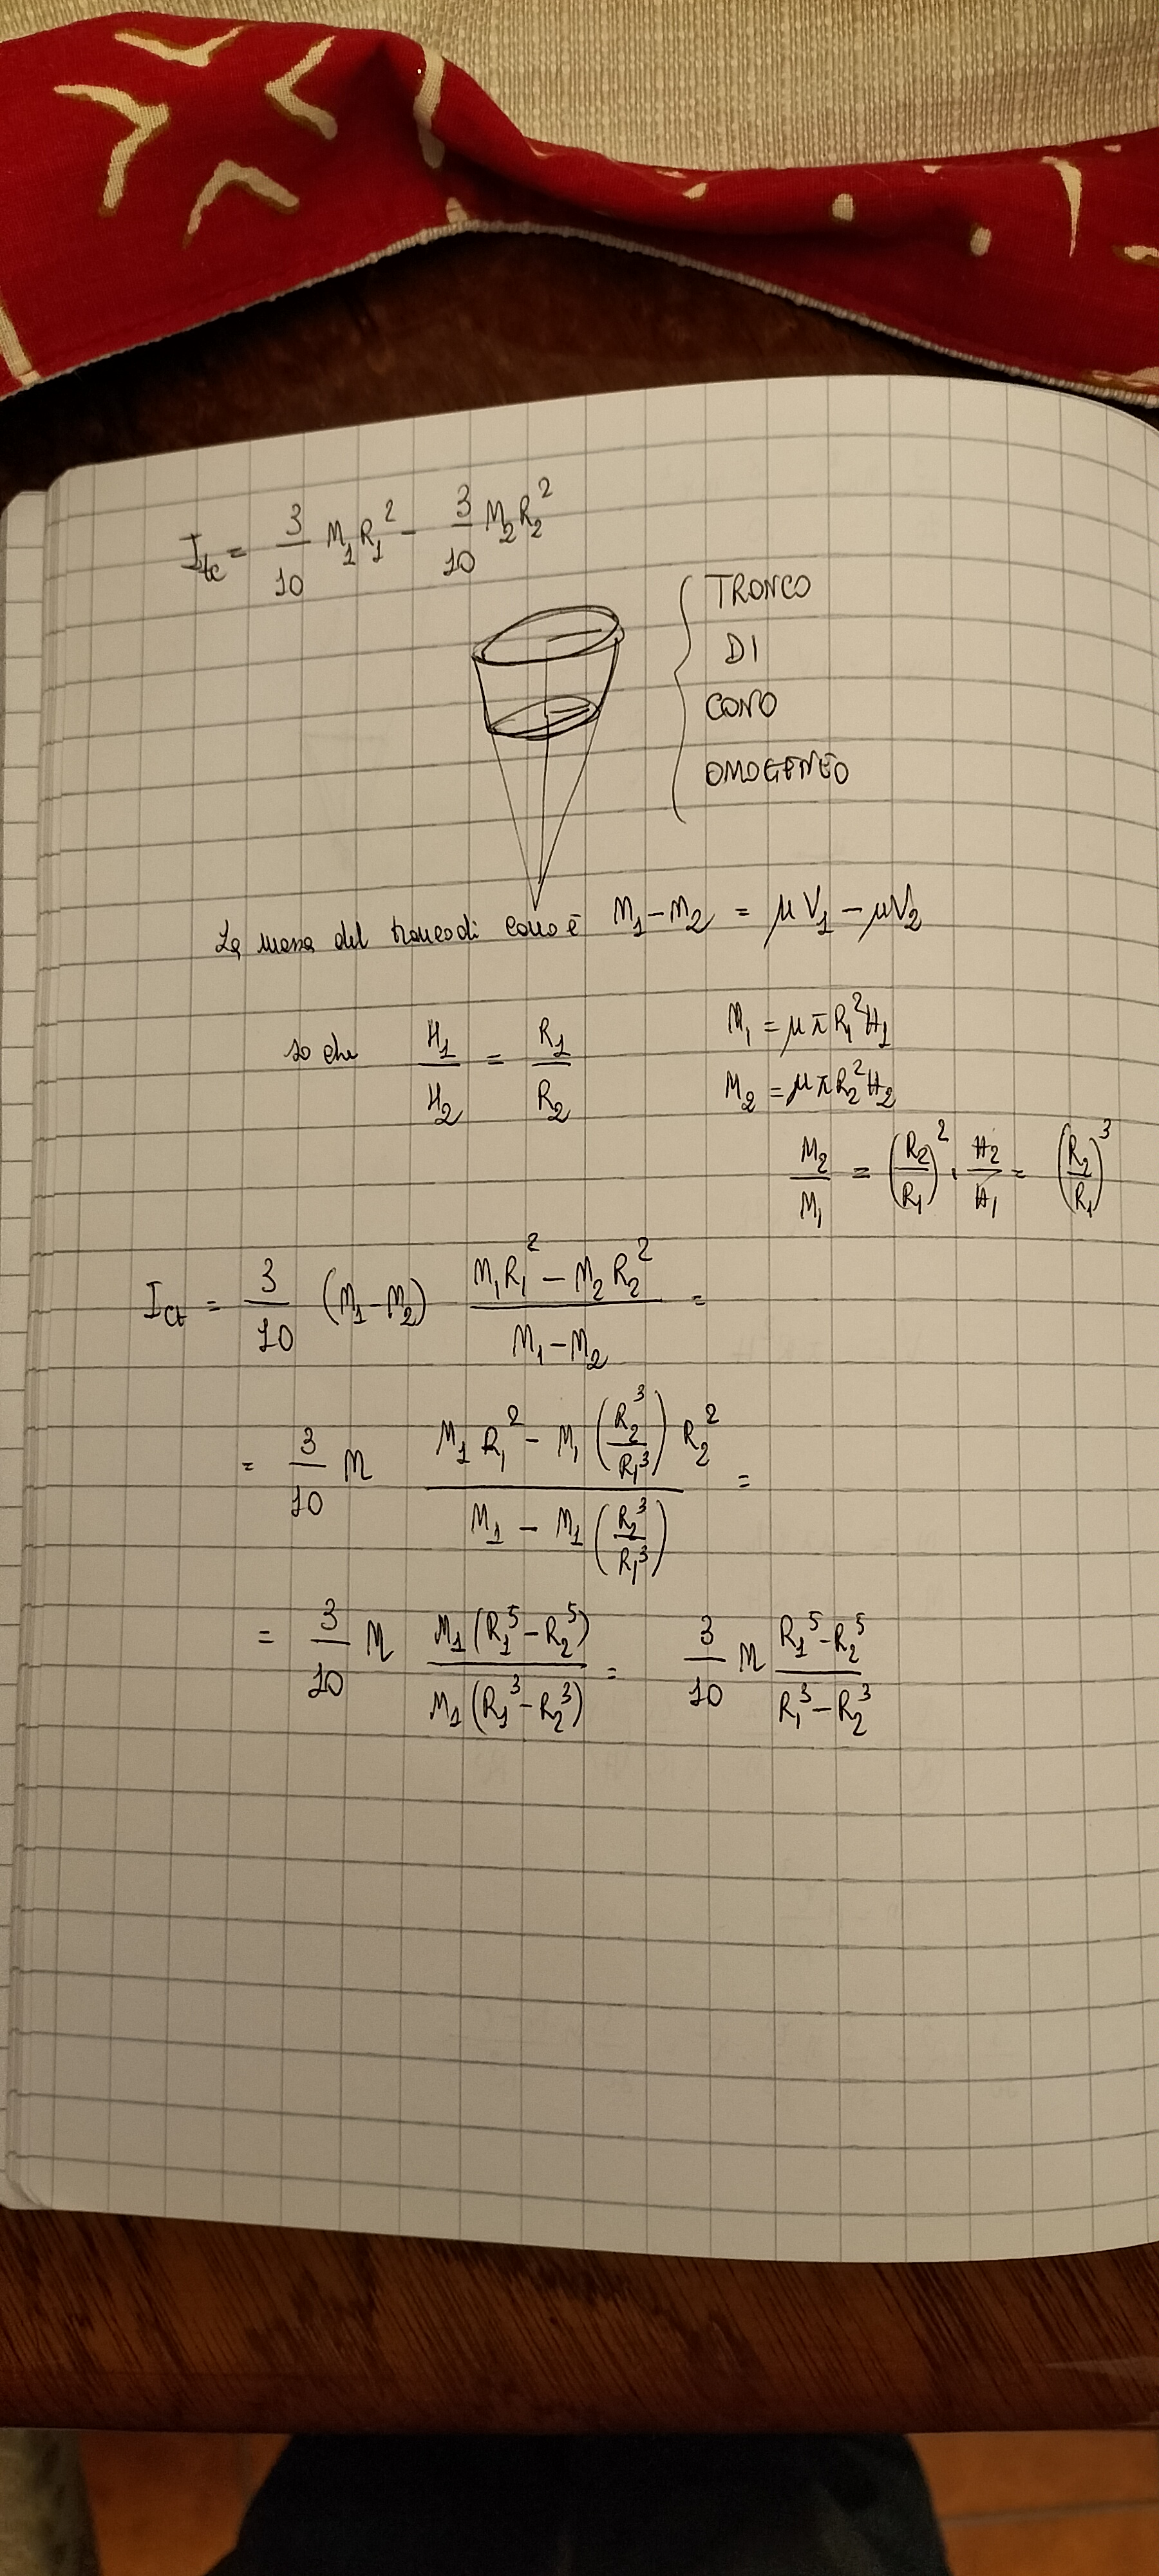 I_tc = 3/10 M₁R₁² - 3/10 M₂R₂²
TRONCO
DI
CONO
OMOGENEO
La massa del tronco di cono è M₁-M₂ = μV₁-μV₂
so che H₁/H₂ = R₁/R₂
M₁ = μπR₁²H₁
M₂ = μπR₂²H₂
M₂/M₁ = (R₂/R₁)² · H₂/H₁ = (R₂/R₁)³
I_ct = 3/10 (M₁-M₂) (M₁R₁² - M₂R₂²)/(M₁-M₂) =
= 3/10 M (M₁R₁² - M₁(R₂³/R₁³)R₂²)/(M₁ - M₁(R₂³/R₁³)) =
= 3/10 M M₁(R₁⁵-R₂⁵)/M₁(R₁³-R₂³) = 3/10 M (R₁⁵-R₂⁵)/(R₁³-R₂³)